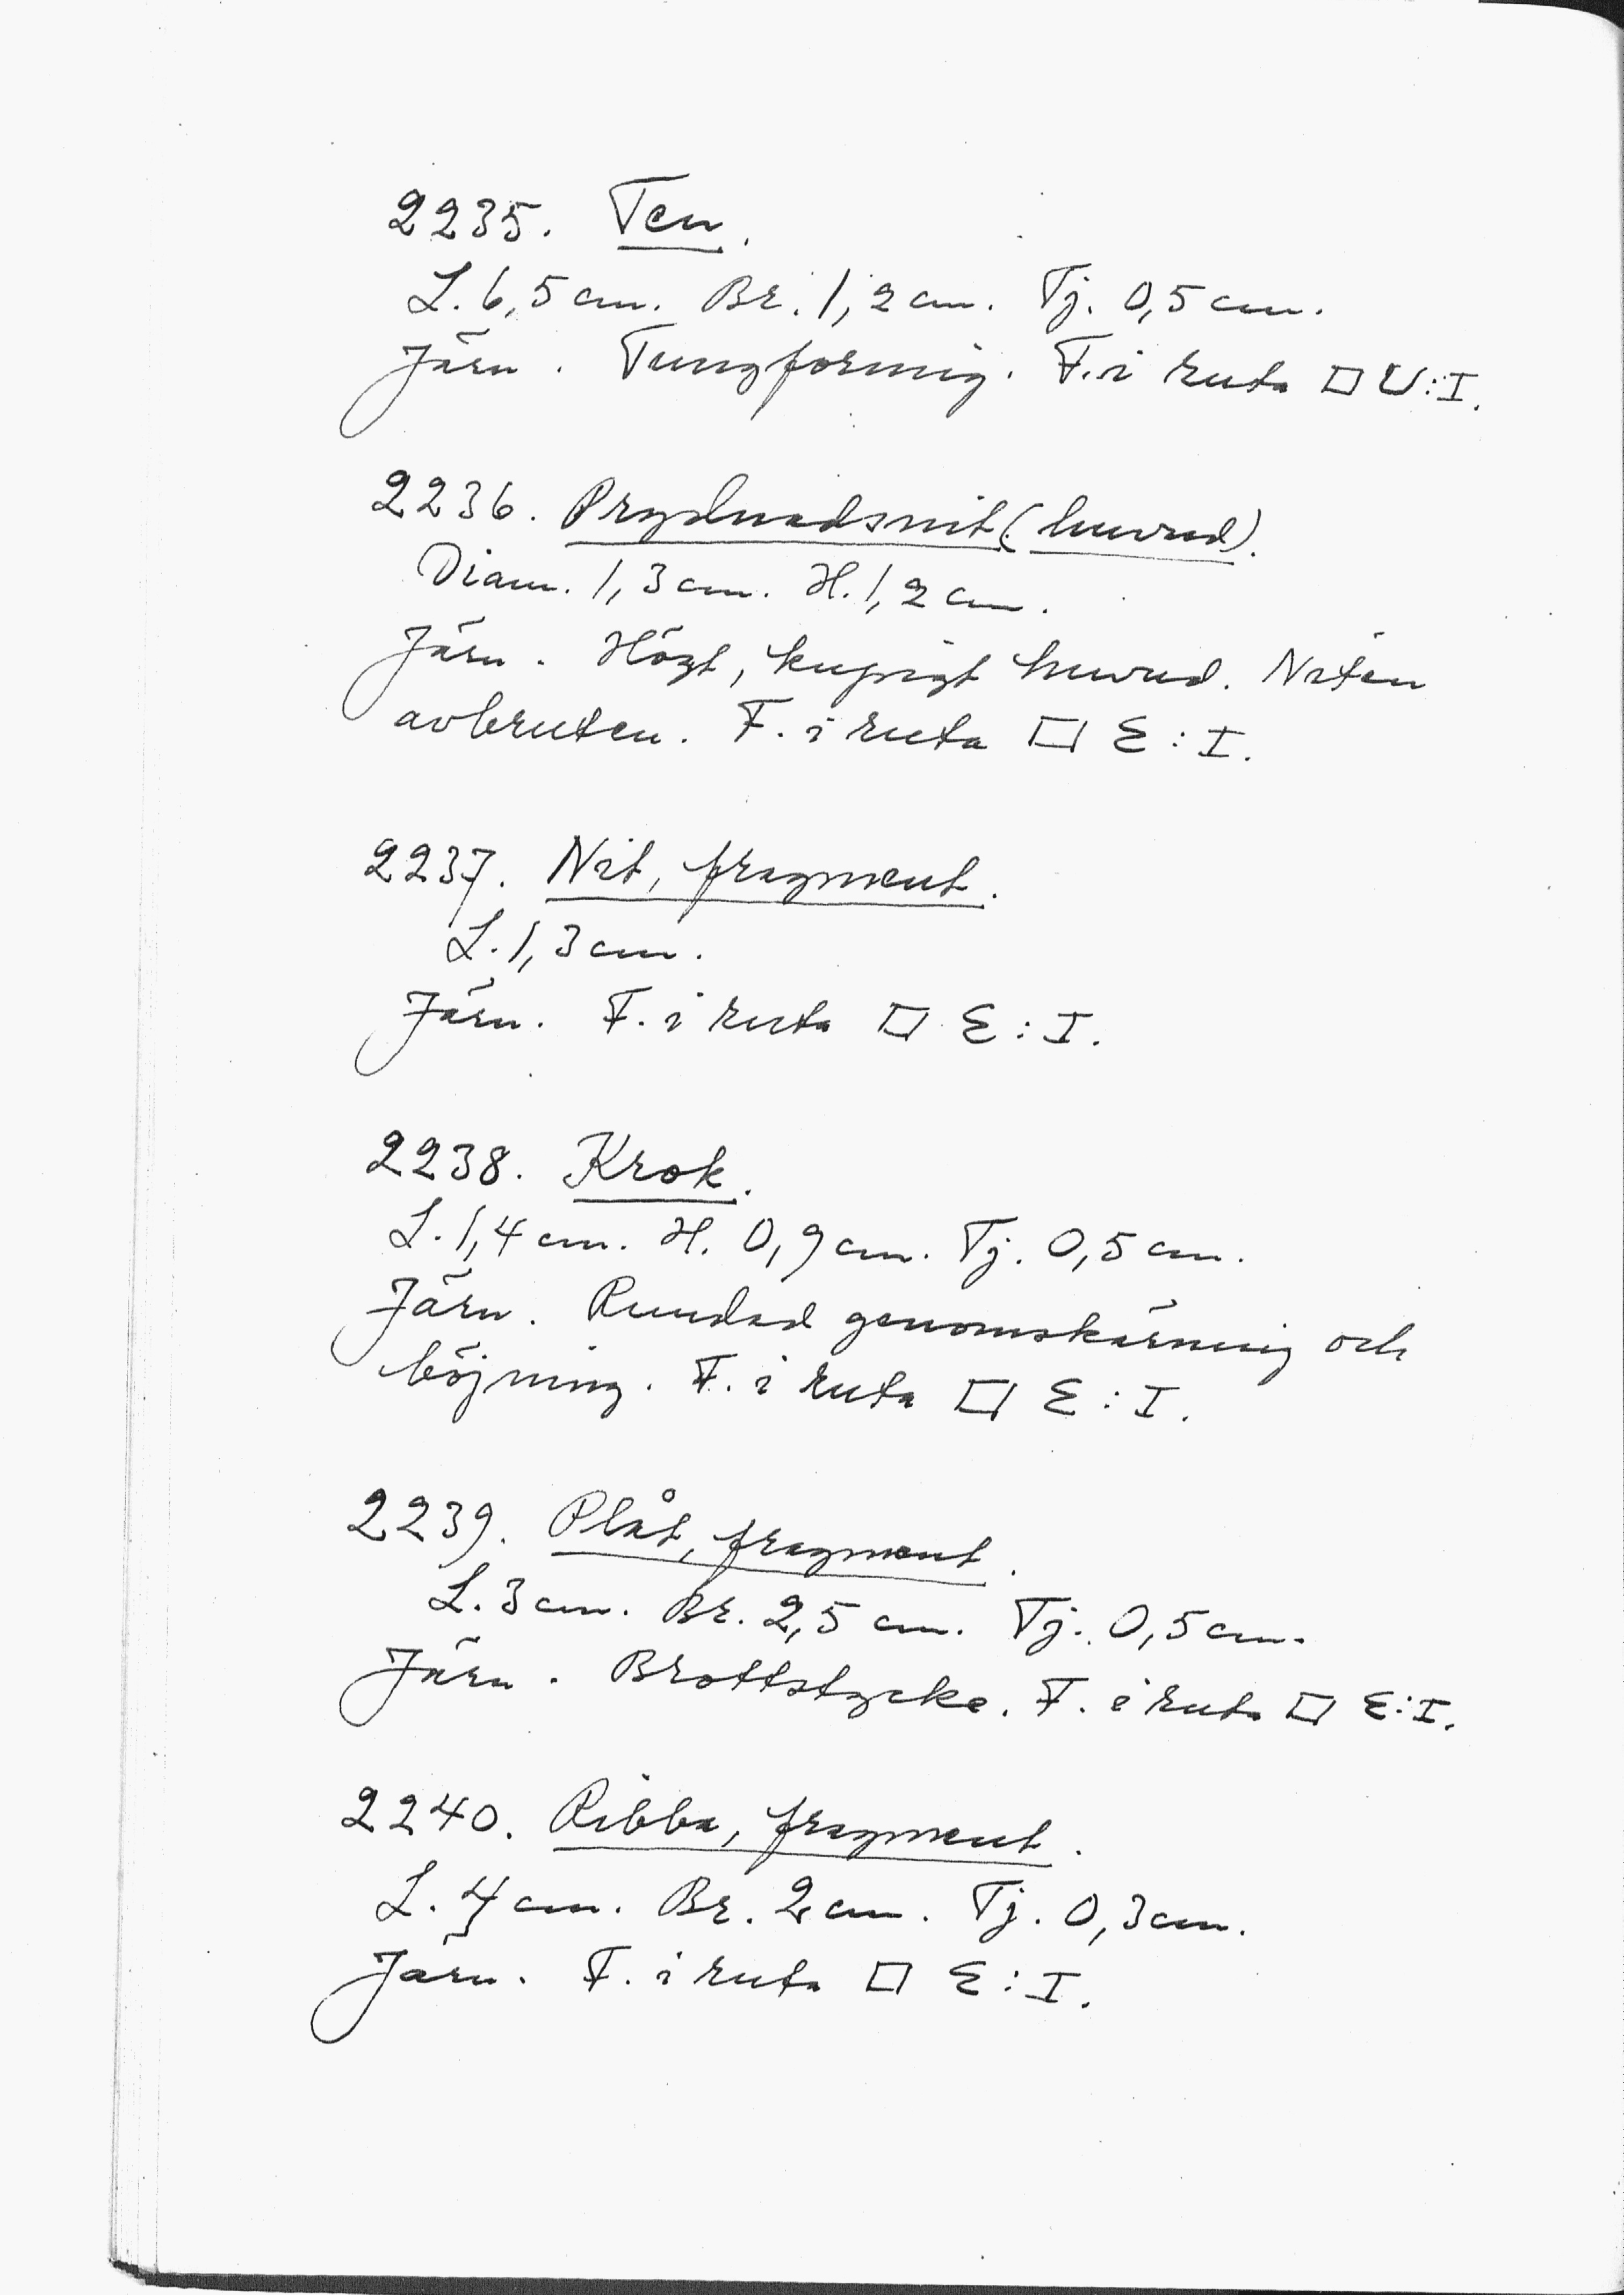 2235. Ten.
L. 6,5 cm. Br. 1,2 cm. Tj. 0,5 cm.
Järn. Tungformig. F. i ruta □ U:I.
2236. Prydnadsnit (huvud).
Diam. 1,3 cm. H. 1,2 cm.
Järn. Högt, kupigt huvud. Niten
avbruten. F. i ruta □ E:I.
2237. Nit, fragment.
L. 1,3 cm.
Järn. F. i ruta □ E:I.
2238. Krok.
L. 1,4 cm. H. 0,9 cm. Tj. 0,5 cm.
Järn. Rundad genomskärning och
böjning. F. i ruta □ E:I.
2239. Plåt, fragment.
L. 3 cm. Br. 2,5 cm. Tj. 0,5 cm.
Järn. Brottstycke. F. i ruta □ E:I.
2240. Ribba, fragment.
L. 4 cm. Br. 2 cm. Tj. 0,3 cm.
Järn. F. i ruta □ E:I.